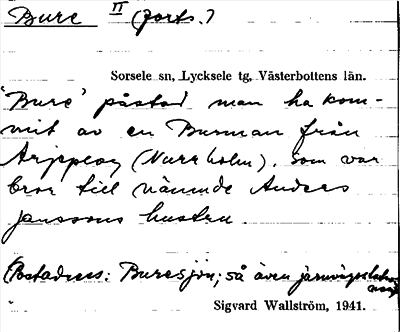 Bure II (forts.)
Sorsele sn, Lycksele tg, Västerbottens län.
'Bure' påstod man ha kom-
mit av en Burman från
Arjeplog (Norrholm). Som var
bror till nämnde Anders
Janssons hustru.
(Postadress: Buresjön; så även järnvägsstationen
Sigvard Wallström, 1941.